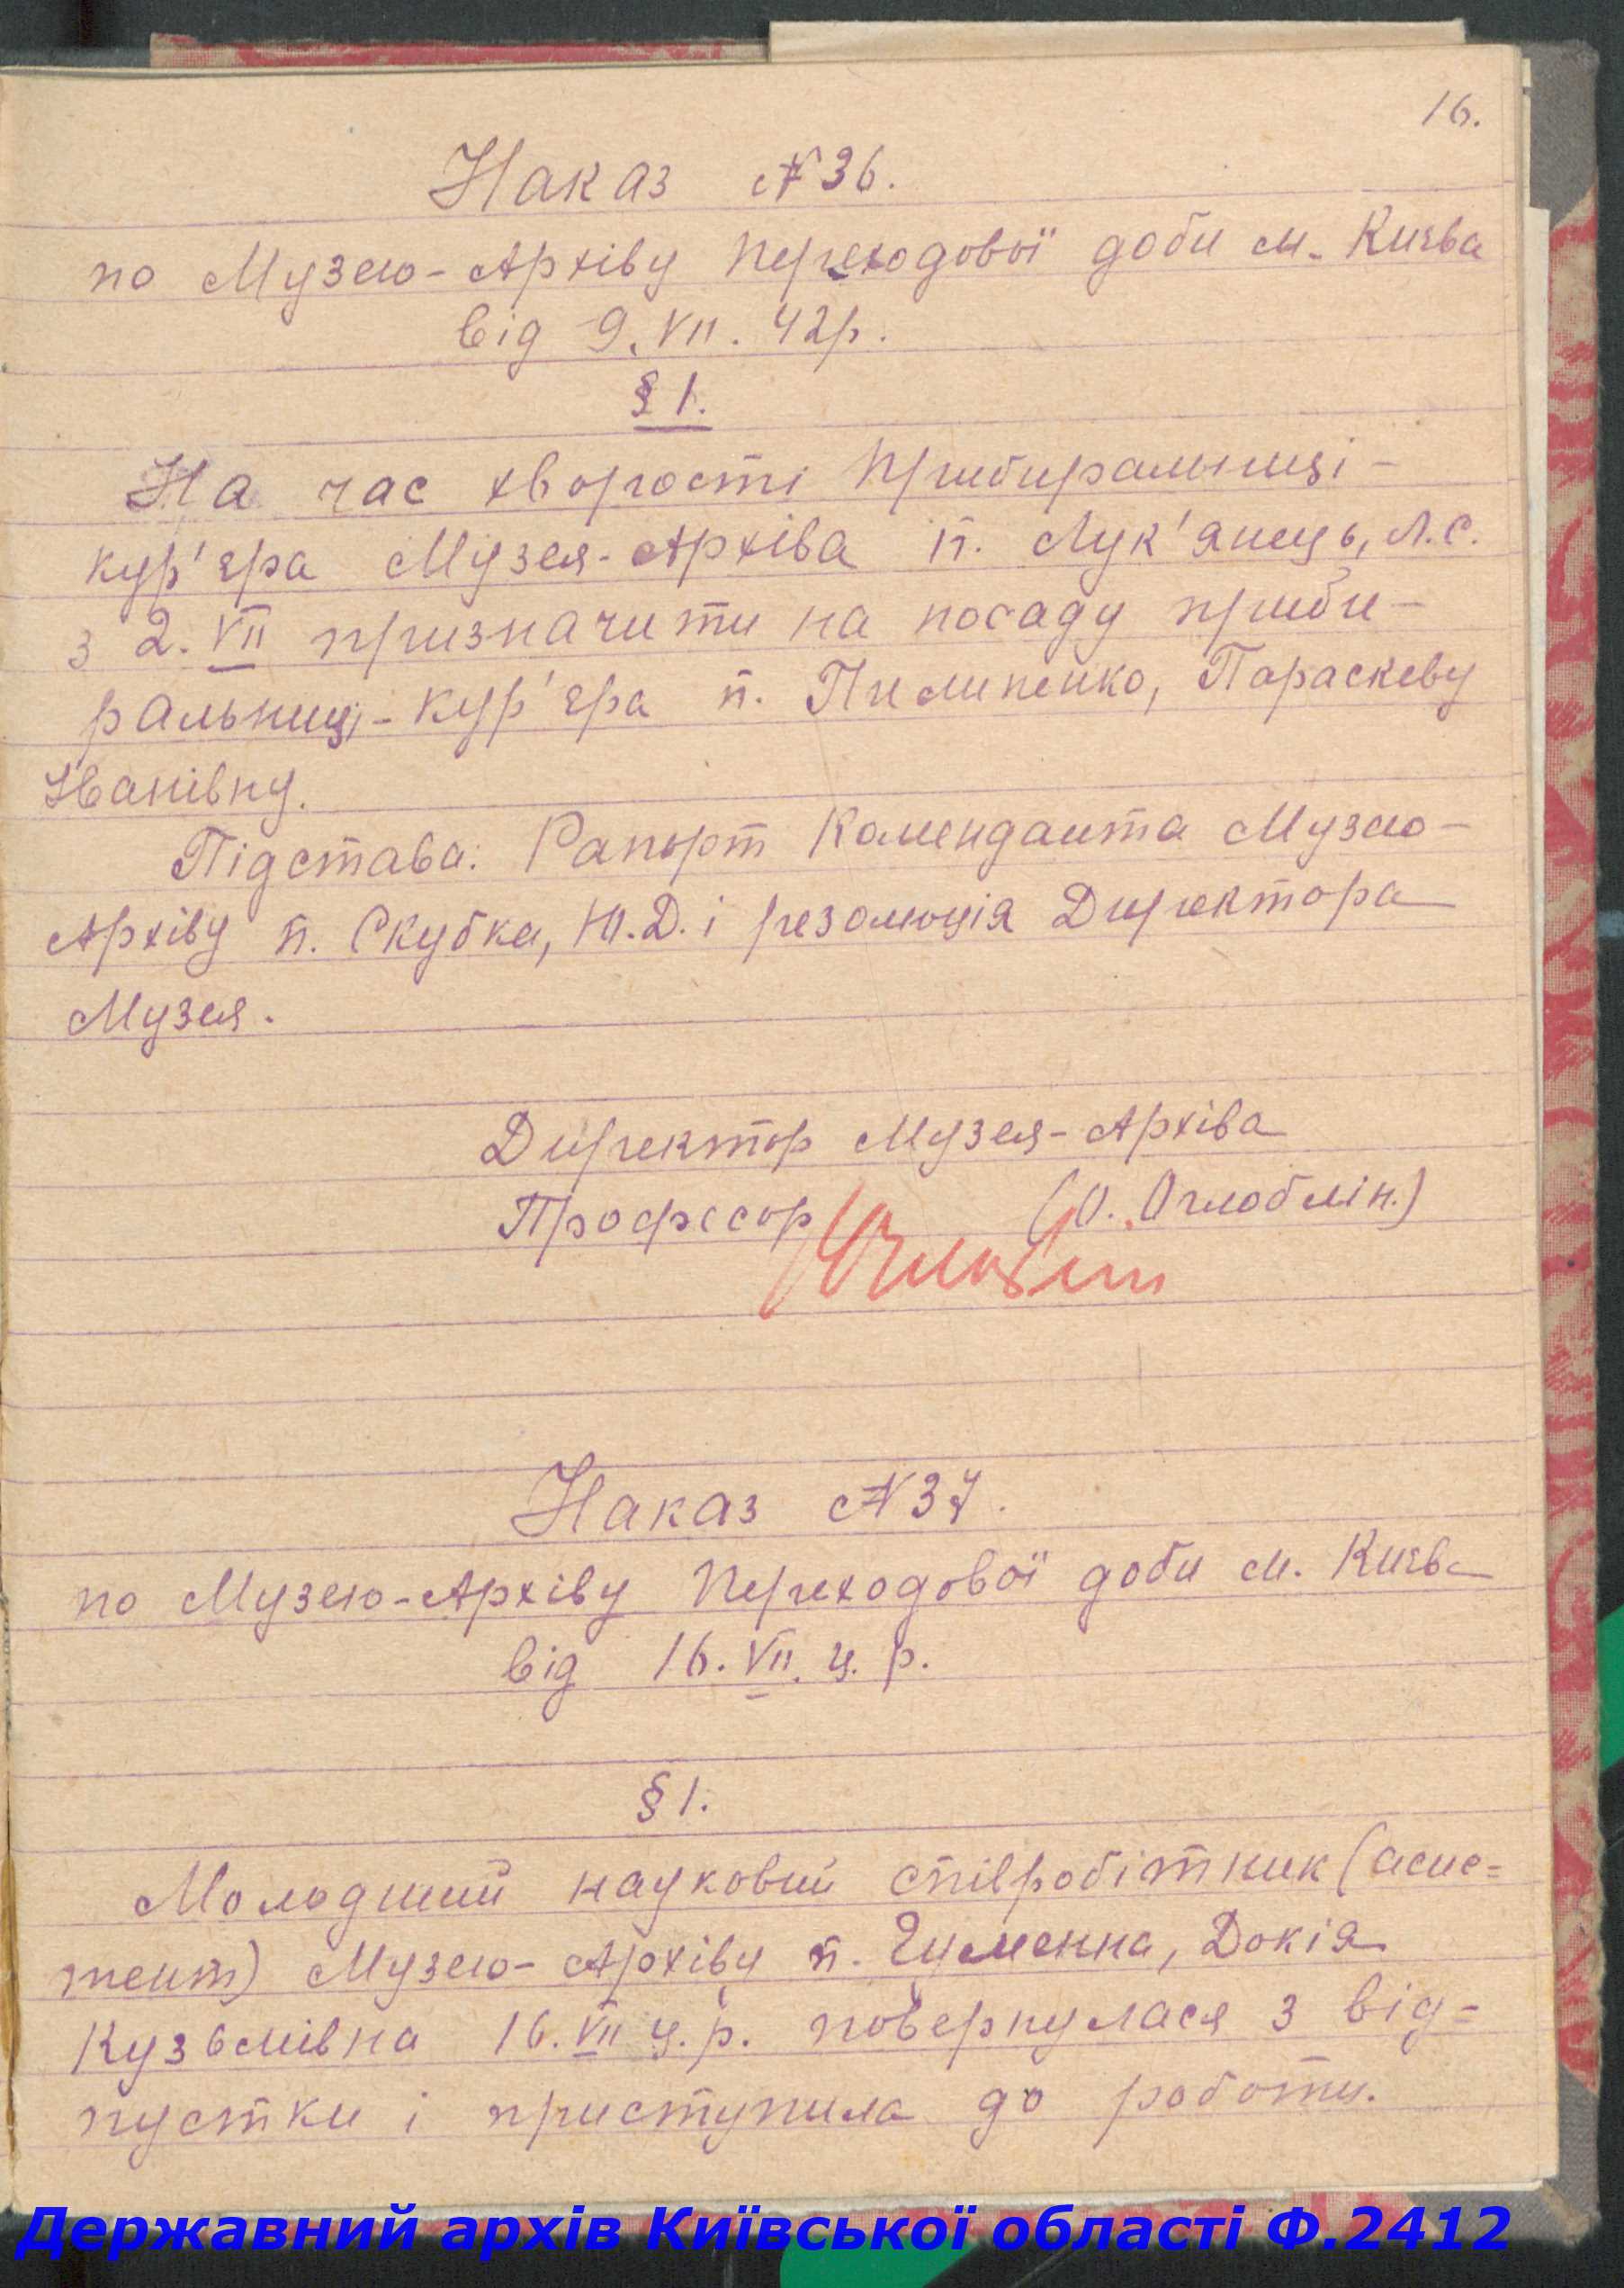 16.
Наказ №36.
по Музею-Архіву Переходової доби м. Києва
від 9.VII.42р.
§ 1.
На час хворости прибиральниці-
кур'єра Музея-Архіва п. Лук'янець, Л.С.
з 2.VII призначити на посаду приби-
ральниці-кур'єра п. Пилипенко, Параскеву
Іванівну.
Підстава: Рапорт Коменданта Музею-
Архіву п. Скубка, Ю.Д. і резолюція Директора
Музея.
Директор Музея-Архіва
Професор (О. Оглоблін.)
Наказ №37.
по Музею-Архіву Переходової доби м. Києва
від 16.VII.ц.р.
§ 1.
Молодший науковий співробітник (асис=
тент) Музею-Архіву п. Гуменна, Докія
Кузьмівна 16.VII ц.р. повернулася з від=
пустки і приступила до роботи.
Державний архів Київської області Ф.2412